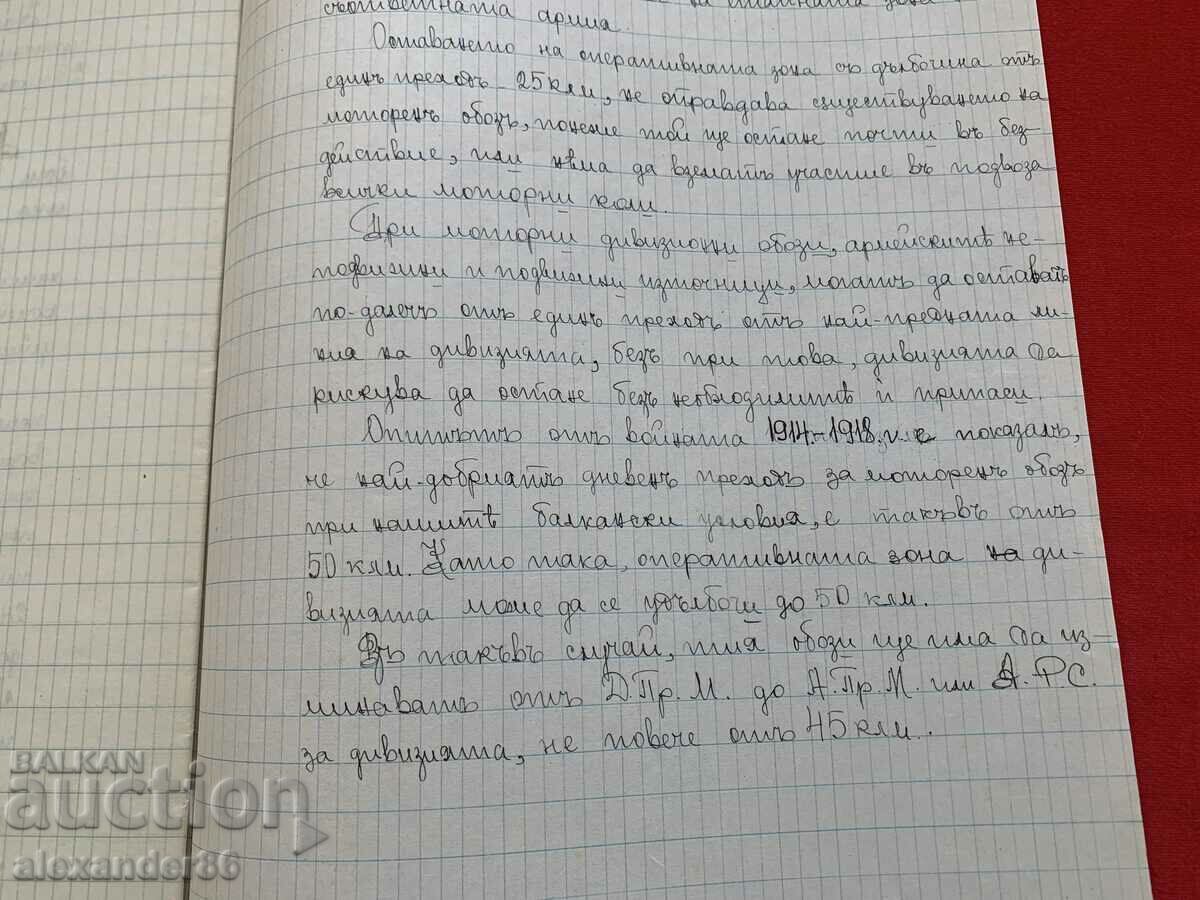 на тайната зона
съответната армия.
Оставането на оперативната зона съ дълбочина отъ
единъ преходъ – 25 клм, не оправдава съществуването на
моторенъ обозъ, понеже той ще остане почти въ без-
действие, или нѣма да взематъ участие въ подвоза
всички моторни коли.
При моторни дивизионни обози, армейскитѣ не-
подвижни и подвижни източници, могатъ да оставатъ
по-далечъ отъ единъ преходъ отъ най-предната ли-
ния на дивизията, безъ при това, дивизията да
рискува да остане безъ необходимитѣ ѝ припаси.
Опитътъ отъ войната 1914.-1918. г. е показалъ,
че най-добриятъ дневенъ преходъ за моторенъ обозъ
при нашитѣ балкански условия, е такъвъ отъ
50 клм. Като така, оперативната зона на ди-
визията може да се удълбочи до 50 клм.
Въ такъвъ случай, тия обози ще има да из-
минаватъ отъ Д.Пр.М. до А.Пр.М. или А.Р.С.
за дивизията, не повече отъ 45 клм.
BALKAN
auction
alexander86